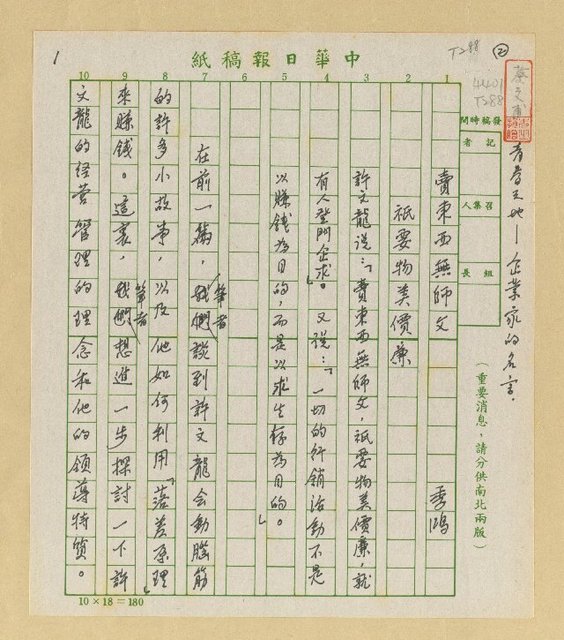 中華日報稿紙
1
T288
②
4401
T288
青春天地—企業家的名言.
發稿時間
記者
召集人
組長
(重要消息,請分供南北兩版)
10 9 8 7 6 5 4 3 2 1
賣東西無師文
季鴻
祇要物美價廉
許文龍說:「賣東西無師文,祇要物美價廉,就
有人登門企求。」又說:「一切的行銷活動不是
以賺錢為目的,而是以求生存為目的。」
在前一篇,我們筆者談到許文龍會動腦筋
的許多小故事,以及他如何利用「落差原理」
來賺錢。這裏,我們筆者想進一步探討一下許
文龍的經營管理的理念和他的領導特質。
10×18=180